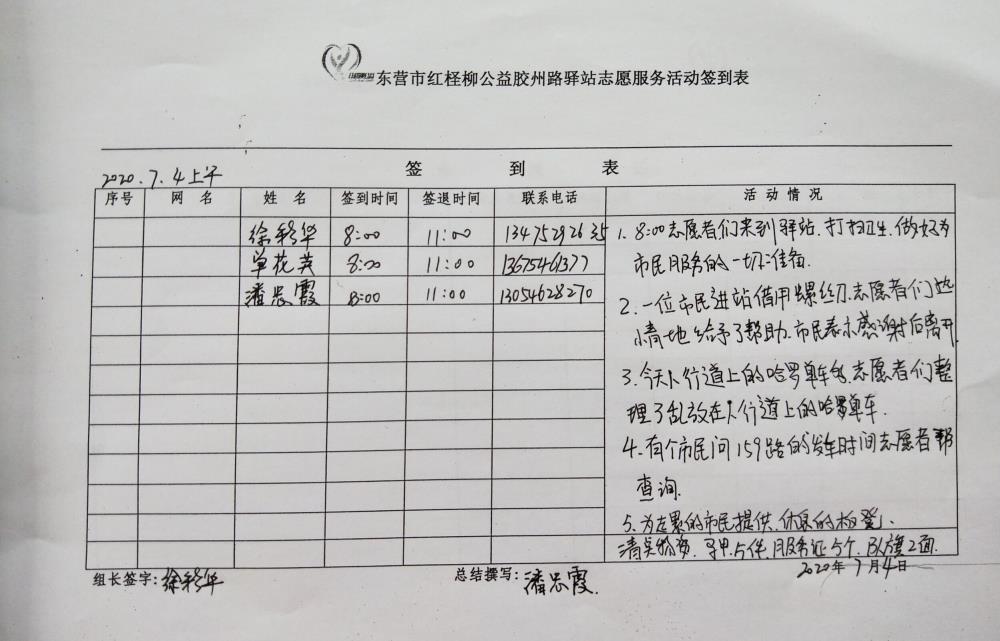 东营市红柽柳公益胶州路驿站志愿服务活动签到表
2020.7.4上午
签 到 表
序号 网 名 姓 名 签到时间 签退时间 联系电话 活 动 情 况
徐彩华 8:00 11:00 13475292635
单花英 8:00 11:00 13675461377
潘忠霞 8:00 11:00 13054628270
1. 8:00志愿者们来到驿站.打扫卫生.做好为
市民服务的一切准备.
2.一位市民进站借用螺丝刀.志愿者们热
情地给予了帮助.市民表示感谢后离开.
3.今天人行道上的哈罗单车多.志愿者们整
理了乱放在人行道上的哈罗单车.
4.有个市民问159路的发车时间志愿者帮
查询.
5.为走累的市民提供.休息的板凳.
清点物资. 马甲5件.服务证5个.队旗2面.
组长签字:徐彩华
总结撰写:潘忠霞.
2020年7月4日